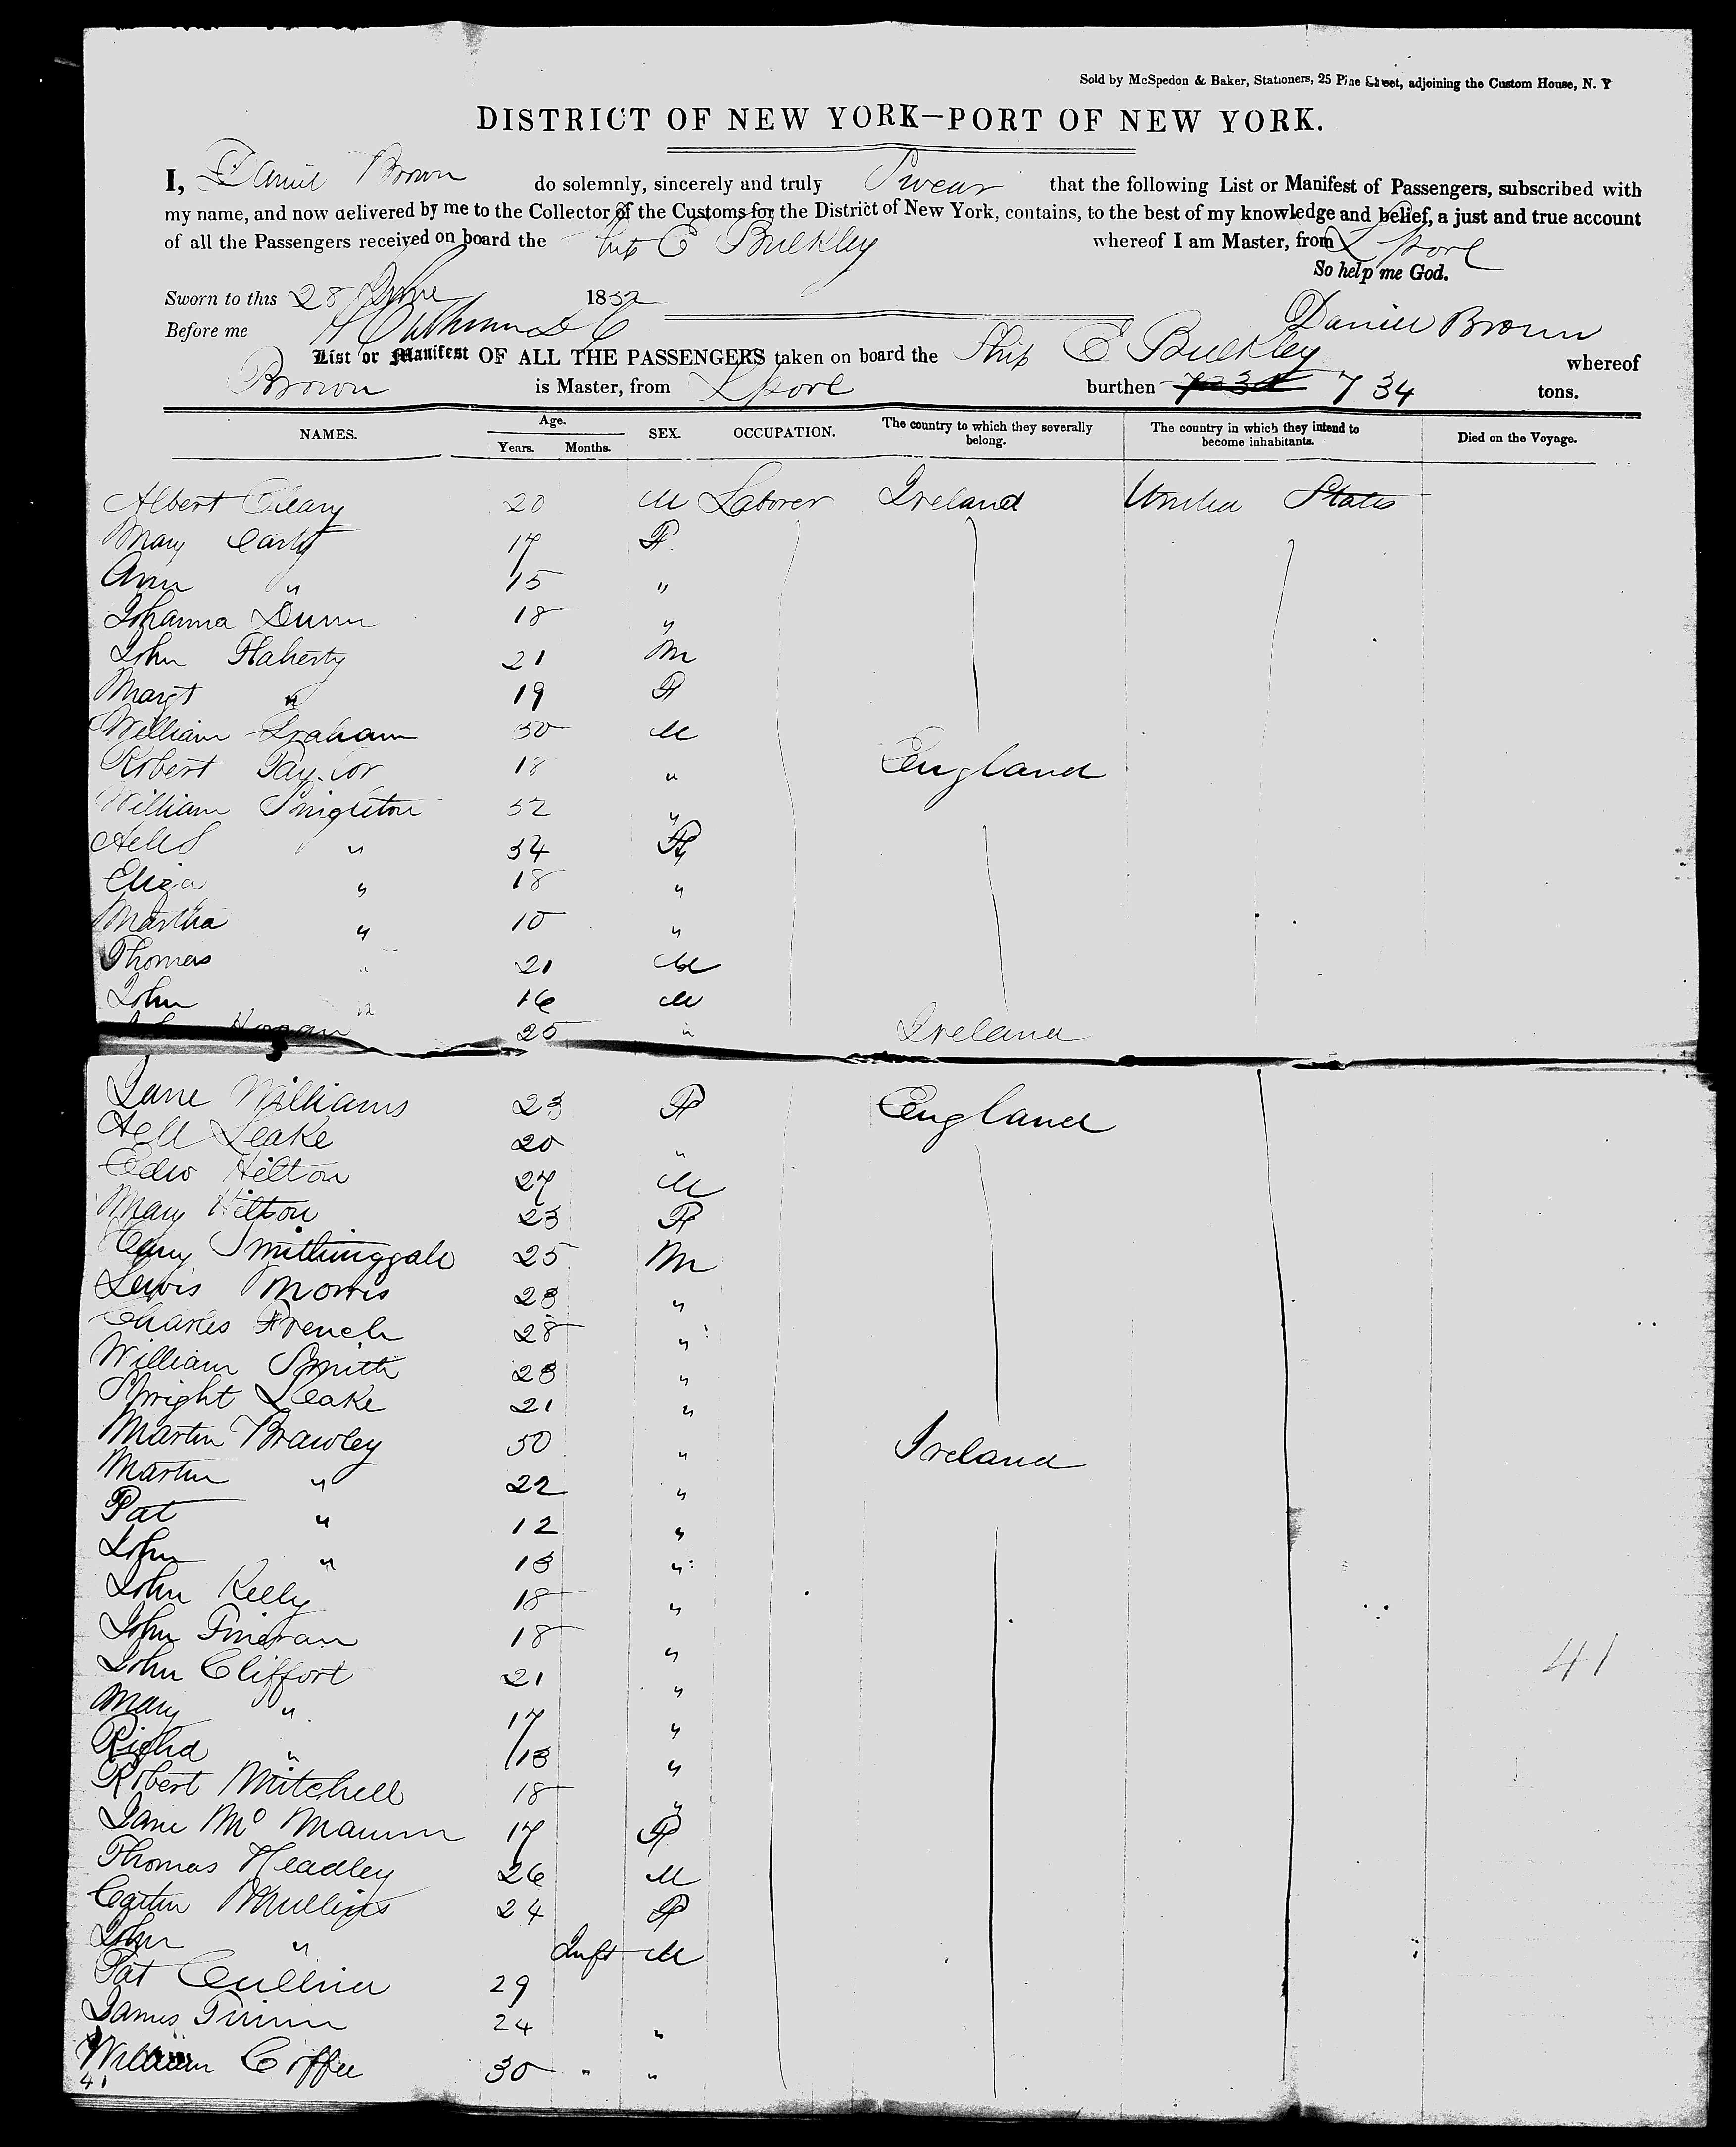 Sold by McSpedon & Baker, Stationers, 25 Pine Street, adjoining the Custom House, N. Y
DISTRICT OF NEW YORK—PORT OF NEW YORK.
I, Daniel Brown do solemnly, sincerely and truly Swear that the following List or Manifest of Passengers, subscribed with
my name, and now delivered by me to the Collector of the Customs for the District of New York, contains, to the best of my knowledge and belief, a just and true account
of all the Passengers received on board the Ship E Bulkley whereof I am Master, from Lpool
So help me God.
Sworn to this 28 June 1852
Before me Daniel Brown
List or Manifest OF ALL THE PASSENGERS taken on board the Ship E Bulkley whereof
Brown is Master, from Lpool burthen 734 tons.
NAMES. Age. Years. Months. SEX. OCCUPATION. The country to which they severally belong. The country in which they intend to become inhabitants. Died on the Voyage.
Albert Cleary 20 M Laborer Ireland United States
Mary Carty 17 F
Ann " 15 "
Johanna Dunn 18 "
John Flaherty 21 M
Margt " 19 F
William Graham 30 M
Robert Taylor 18 " England
William Singleton 52 "
" 54 F
Eliza " 18 "
Martha " 10 "
Thomas " 21 M
John " 16 M
Hogan 25 " Ireland
Jane Williams 23 F England
Leake 20 "
Edw Hilton 27 M
Mary Hilton 23 F
25 M
Lewis Morris 28 "
Charles French 28 "
William Smith 28 "
Leake 21 "
Martin Brawley 50 " Ireland
Martin " 22 "
Pat " 12 "
John " 13 "
John Kelly 18 "
John Fineran 18 "
John Cliffort 21 "
Mary " 17 "
Richd " 13 "
Robert Mitchell 18 "
Jane Mc Mannn 17 F
Thomas Headley 26 M
Cathn Mullins 24 F
John " Inft M
Pat 29
James 24 "
William Coffee 30 " "
41
41